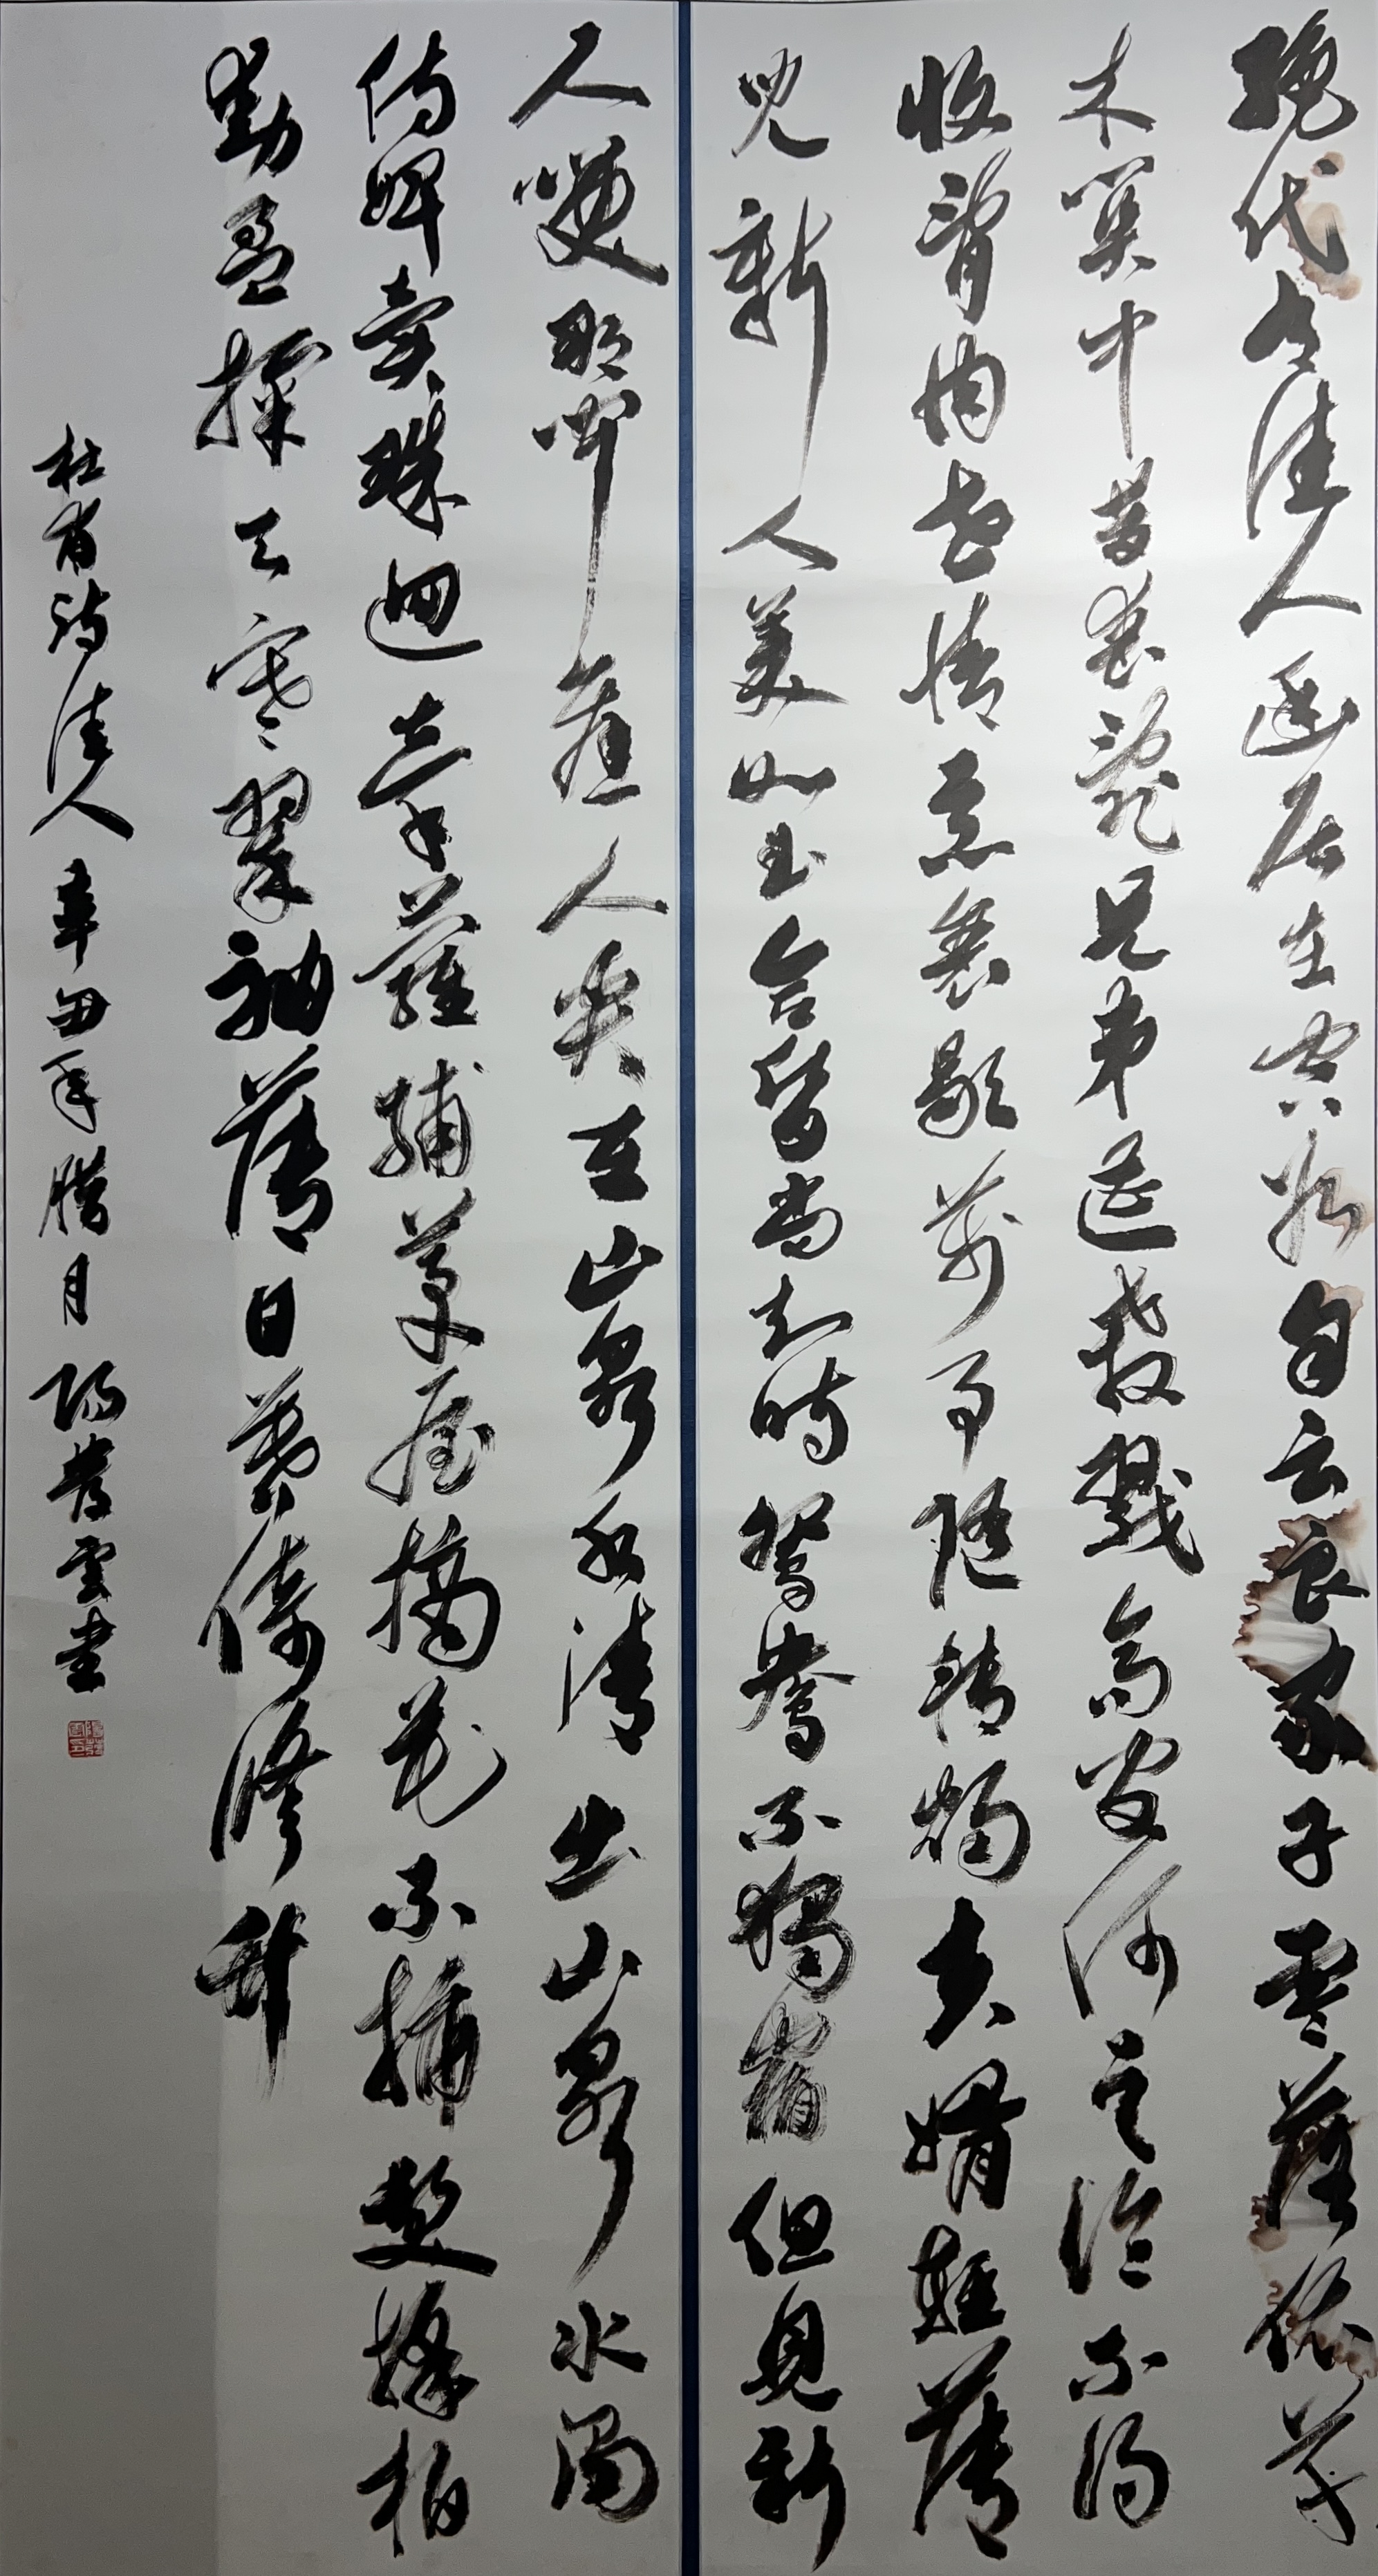 絕代有佳人幽居在空谷自云良家子零落依草
木關中昔喪亂兄弟遭殺戮高官何足論不得
收骨肉世情惡衰歇萬事隨轉燭夫婿輕薄
兒新人美如玉合昏尚知時鴛鴦不獨宿但見新
人笑那聞舊人哭在山泉水清出山泉水濁
侍婢賣珠迴牽蘿補茅屋摘花不插髮採柏
動盈掬天寒翠袖薄日暮倚修竹
杜甫詩佳人辛丑年臘月陽雲書